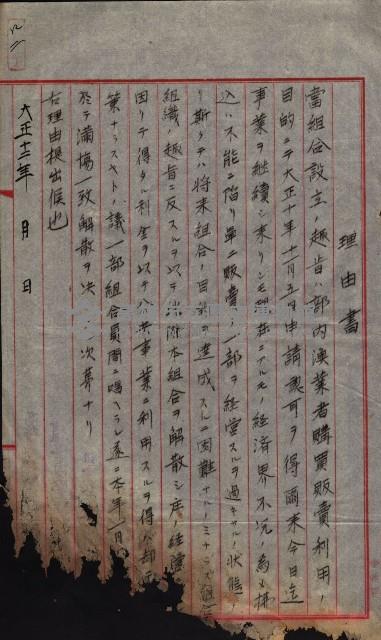 理由書
當組合設立ノ趣旨ハ部内漁業者購買販賣利用ノ
目的ニテ大正十年十一月五日申請認可ヲ得爾来今日迄
事業ヲ継續シ来リシモ現在ニアルモノ経済界不況ノ為メ
込ハス能ニ陷リ単ニ販賣ノ一部ヲ経営スルヲ過キサル状態
斯クテハ将来組合ノ目的ヲ達成スルニ困難ナルノミナラス
組織ノ趣旨ニ反スルヲ以テ 此際本組合ヲ解散シ
因リテ得タル利金ヲ以テ公共事業ニ利用スルヲ得ハ却而
策ナラスヤトノ議一部組合員間ニ唱ヘラレ遂ニ本年一月
於テ滿場一致解散ヲ決 次第ナリ
右理由提出候也
大正十二年 月 日